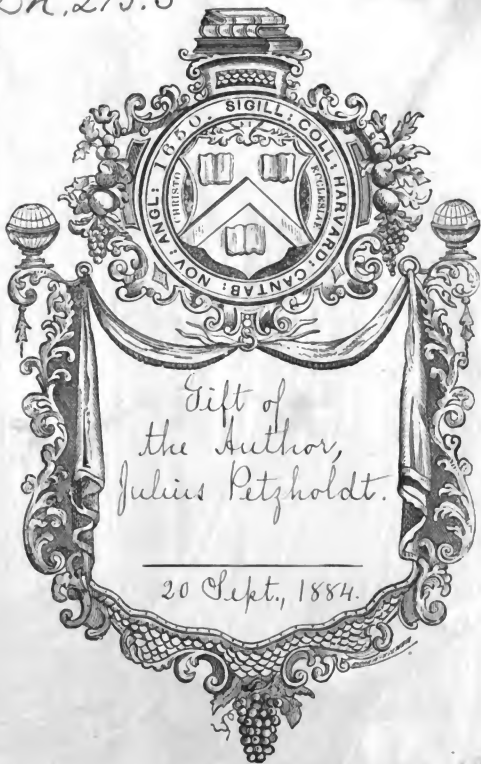 SIGILL: COLL: HARVARD: CANTAB: NOV: ANGL: 1650.
CHRISTO
ECCLESIAE
Gift of
the Author,
Julius Petzholdt.
20 Sept., 1884.